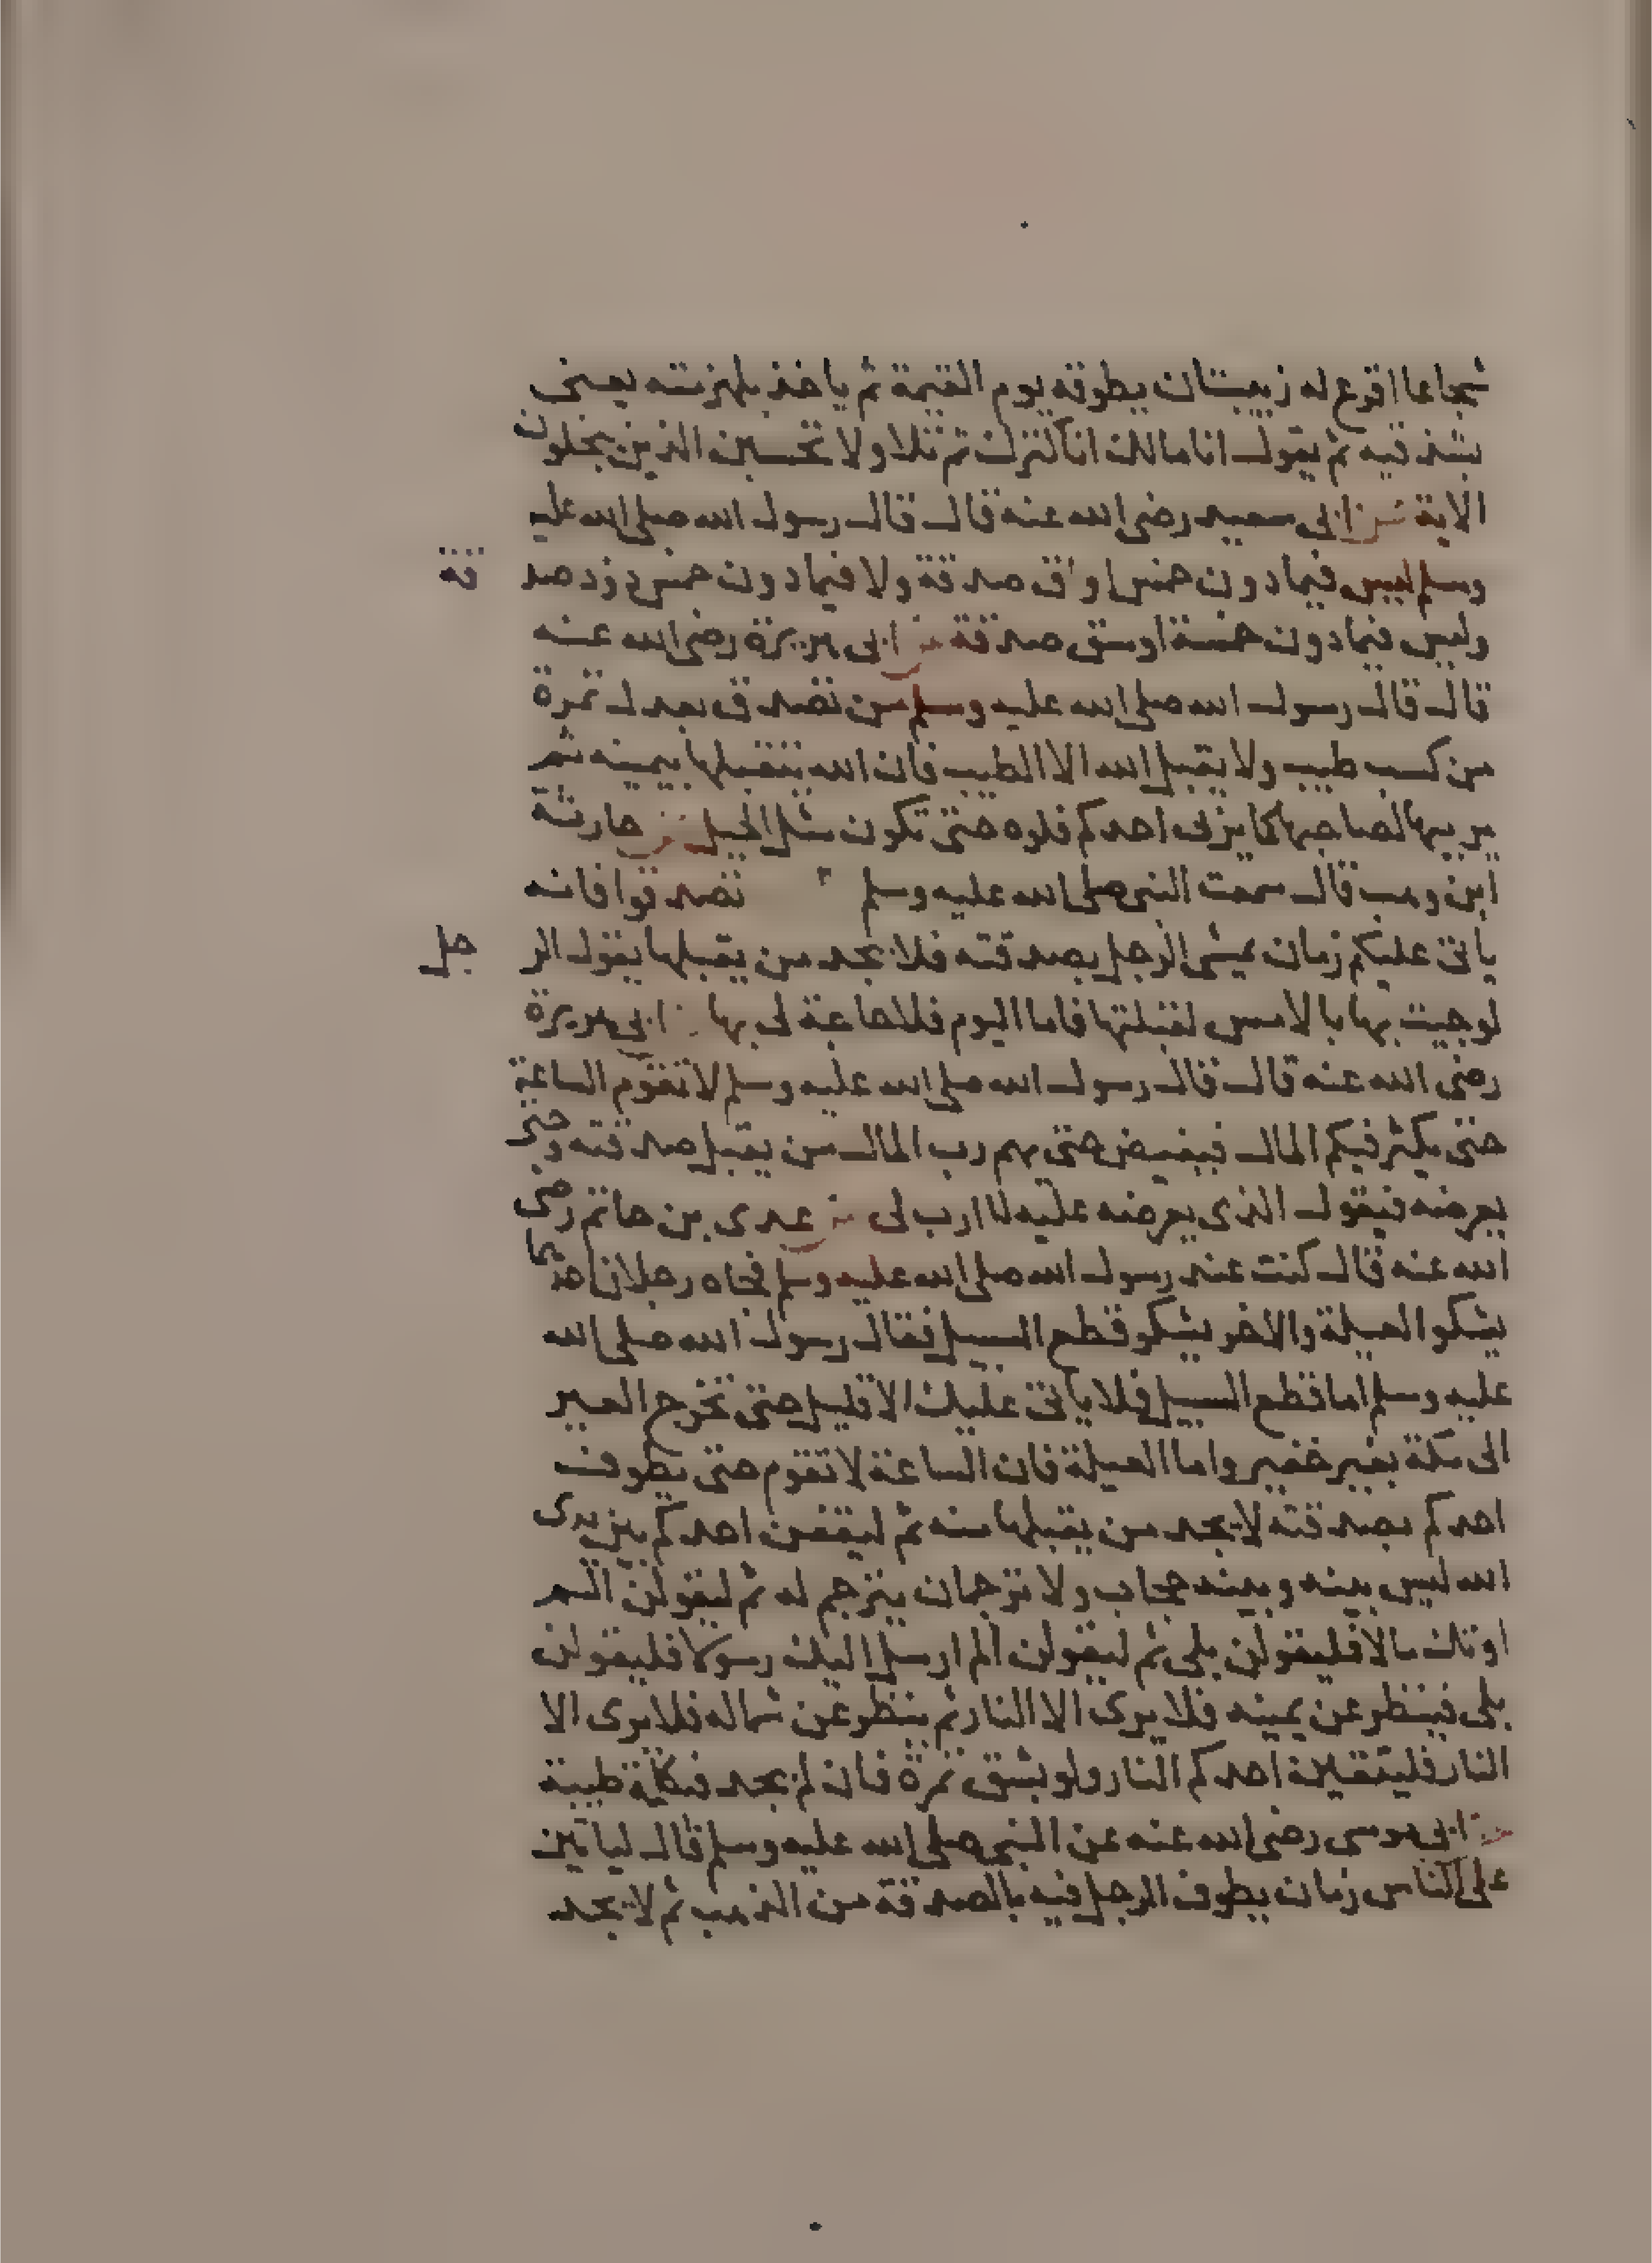 شجاعا اقرع له زبيبتان يطوقه يوم القيمة ثم ياخذ بلهزمته يعنى
بشدقيه ثم يقول انا مالك انا كنزك ثم تلا ولا تحسبن الذين يبخلون
الاية عن ابى سعيد رضى الله عنه قال قال رسول الله صلى الله عليه
وسلم ليس فيما دون خمس اواق صدقة ولا فيما دون خمس ذود صدقة
وليس فيما دون خمسة اوسق صدقة عن ابى هريرة رضى الله عنه
قال قال رسول الله صلى الله عليه وسلم من تصدق بعدل تمرة
من كسب طيب ولا يقبل الله الا الطيب فان الله يتقبلها بيمينه ثم
يربيها لصاحبها كما يربى احدكم فلوه حتى تكون مثل الجبل عن حارثة
ابن وهب قال سمعت النبى صلى الله عليه وسلم تصدقوا فانه
ياتى عليكم زمان يمشى الرجل بصدقته فلا يجد من يقبلها يقول الرجل
لو جيت بها بالامس لقبلتها فاما اليوم فلا حاجة لى بها عن ابى هريرة
رضى الله عنه قال قال رسول الله صلى الله عليه وسلم لا تقوم الساعة
حتى يكثر فيكم المال فيفيض حتى يهم رب المال من يقبل صدقته وحتى
يعرضه فيقول الذى يعرضه عليه لا ارب لى عن عدى بن حاتم رضى
الله عنه قال كنت عند رسول الله صلى الله عليه وسلم فجاه رجلان احدهما
يشكو العيلة والاخر يشكو قطع السبيل فقال رسول الله صلى الله
عليه وسلم اما قطع السبيل فلا ياتى عليك الا قليل حتى تخرج العير
الى مكة بغير خفير واما العيلة فان الساعة لا تقوم حتى يطوف
احدكم بصدقته لا يجد من يقبلها منه ثم ليقفن احدكم بين يدى
الله ليس بينه وبينه حجاب ولا ترجمان يترجم له ثم ليقولن الم
اوتك مالا فليقولن بلى ثم ليقولن الم ارسل اليك رسولا فليقولن
بلى فينظر عن يمينه فلا يرى الا النار ثم ينظر عن شماله فلا يرى الا
النار فليتقين احدكم النار ولو بشق تمرة فان لم يجد فبكلمة طيبة
عن ابى موسى رضى الله عنه عن النبى صلى الله عليه وسلم قال لياتين
على الناس زمان يطوف الرجل فيه بالصدقة من الذهب ثم لا يجد